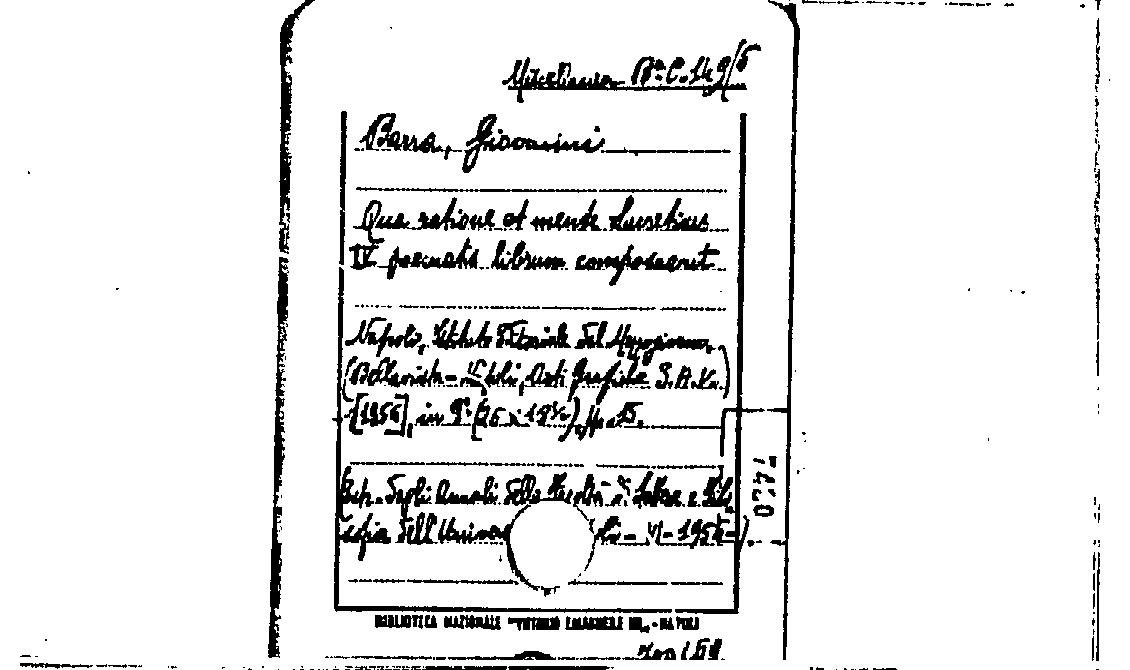 Miscellanea B.a C. 149/5
Barra, Giovanni
Qua ratione et mente Lucretius
IV poematis librum composuerit
Napoli, Istituto Editoriale del Mezzogiorno,
Arti Grafiche
[1956], in 8°
Estr. degli Annali della Facoltà di Lettere e Filo
sofia dell'Univer - VI - 1956 -)
TACO
BIBLIOTECA NAZIONALE "VITTORIO EMANUELE III„ - NAPOLI